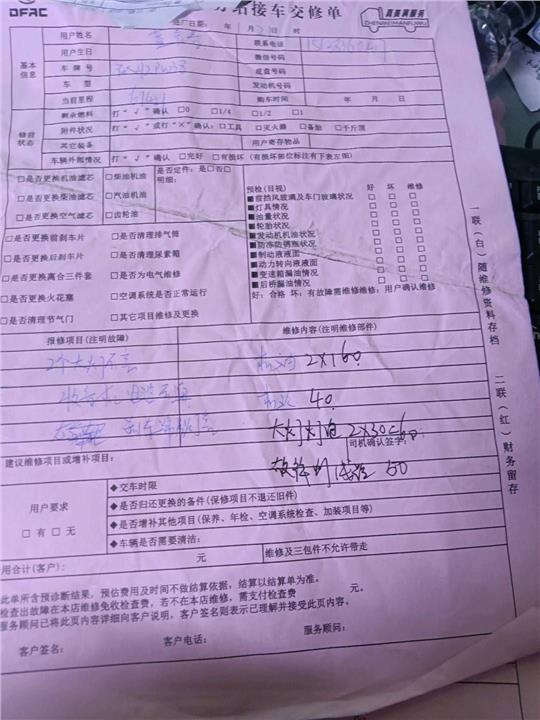 DFAC
接车交修单
真美满服务
ZHENMEIMANFUWU
进厂日期: 年 月 日
基本信息
用户姓名
联系电话
用户生日
微信号码
车牌号
底盘号码
车型
发动机号码
当前里程
购车时间 年 月 日
修前状态
剩余燃料 打"√"确认 □0 □1/4 □1/2 □1
附件状况 打"√"或打"×"确认: □工具 □灭火器 □备胎 □千斤顶
其它装备
用户寄存物品
车辆外部情况 打"√"确认 □完好 □有损坏(有损部位标注有下表左图)
□是否更换机油滤芯 □柴油机油
□是否更换柴油滤芯 □汽油机油
□是否更换空气滤芯 □齿轮油
是否定件: 是□否□
明细:
□是否更换前刹车片 □是否清理排气筒
□是否更换后刹车片 □是否清理尿素箱
□是否更换离合三件套 □是否为电气维修
□是否更换火花塞 □空调系统是否正常运行
□是否清理节气门 □其它项目维修及更换
预检(目视) 好 坏 维修
■前挡风玻璃及车门玻璃状况 □ □ □
■灯具情况 □ □ □
■油量状况 □ □ □
■轮胎状况 □ □ □
■发动机机油状况 □ □ □
■防冻防锈瓶状况 □ □ □
■制动液液面 □ □ □
■动力转向液液面 □ □ □
■变速箱漏油情况 □ □ □
■后桥漏油情况 □ □ □
好: 合格 坏: 有故障需维修维修, 用户确认维修
报修项目(注明故障)
维修内容(注明维修部件)
2个大灯不亮
2×160
40
大灯灯泡 2×30=60
50
建议维修项目或增补项目:
司机确认签字:
用户要求
□有 □无
◆交车时限
◆是否归还更换的备件(保修项目不退还旧件)
◆是否增补其他项目(保养、年检、空调系统检查、加装项目等)
◆车辆是否需要清洁:
用合计(客户): 元
维修及三包件不允许带走
此单所含预诊断结果, 预估费用及时间不做结算依据, 结算以结算单为准。
检查出故障在本店维修免收检查费, 若不在本店维修, 需支付检查费 元。
服务顾问已将此页内容详细向客户说明, 客户签名则表示已理解并接受此页内容。
客户签名: 客户电话: 服务顾问:
一联(白)随维修资料存档
二联(红)财务留存